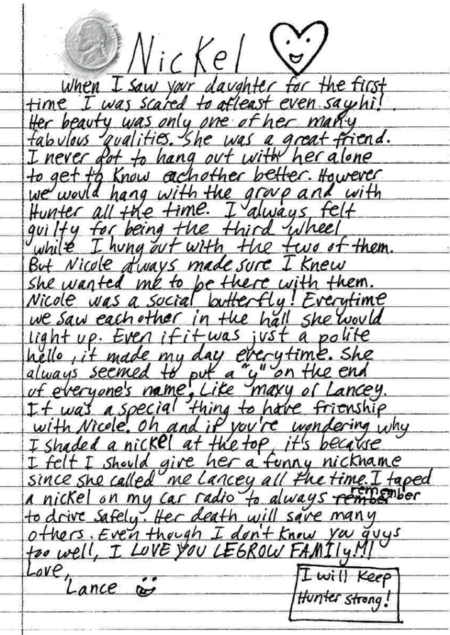 Nickel
When I saw your daughter for the first
time I was scared to atleast even say hi!
Her beauty was only one of her many
fabulous qualities. She was a great friend.
I never got to hang out with her alone
to get to know eachother better. However
we would hang with the group and with
Hunter all the time. I always felt
guilty for being the third wheel
while I hung out with the two of them.
But Nicole always made sure I knew
she wanted me to be there with them.
Nicole was a social butterfly! Everytime
we saw each other in the hall she would
light up. Even if it was just a polite
hello, it made my day everytime. She
always seemed to put a "y" on the end
of everyone's name, Like maxy or Lancey.
It was a special thing to have frienship
with Nicole. Oh and if you're wondering why
I shaded a nickel at the top, it's because
I felt I should give her a funny nickname
since she called me Lancey all the time. I taped
a nickel on my car radio to always remember
to drive safely. Her death will save many
others. Even though I don't know you guys
too well, I LOVE YOU LEGROW FAMILY!!!
Love,
Lance
I will keep
Hunter strong!